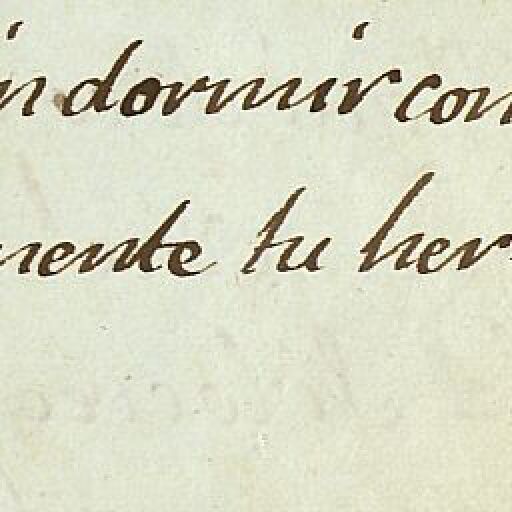 in dormir con
mente tu her